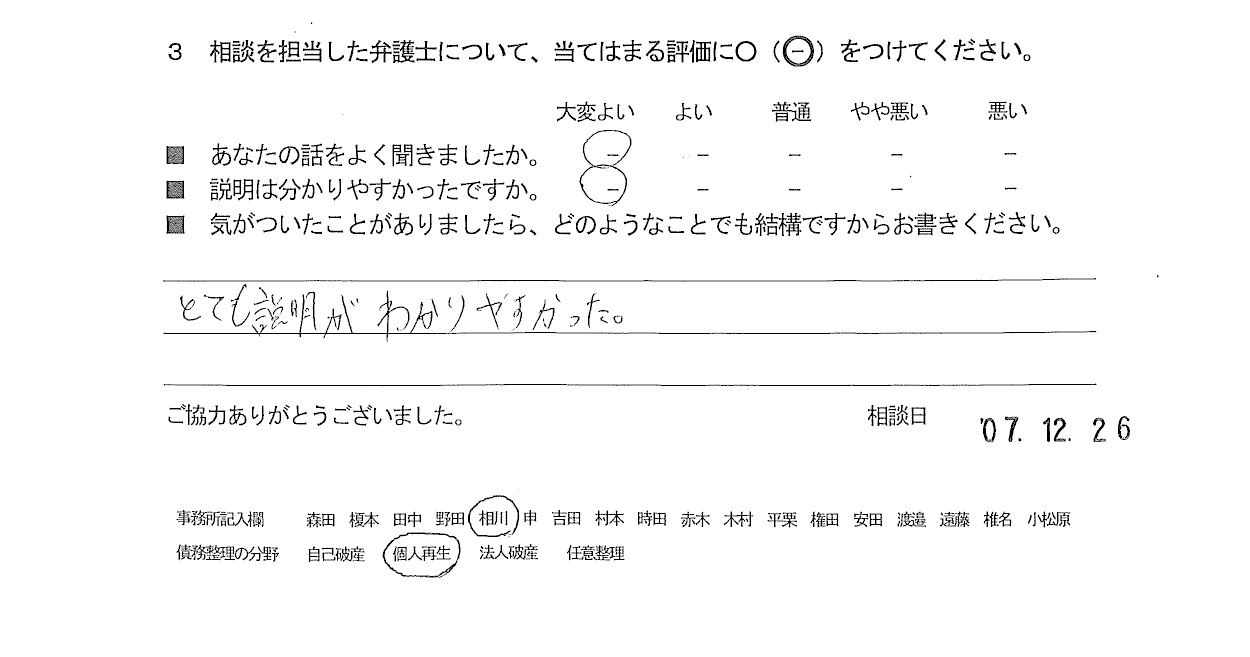 3 相談を担当した弁護士について、当てはまる評価に○(㊀)をつけてください。
大変よい よい 普通 やや悪い 悪い
■ あなたの話をよく聞きましたか。 − − − − −
■ 説明は分かりやすかったですか。 − − − − −
■ 気がついたことがありましたら、どのようなことでも結構ですからお書きください。
とても説明がわかりやすかった。
ご協力ありがとうございました。 相談日 '07.12.26
事務所記入欄 森田 榎本 田中 野田 相川 申 吉田 村本 時田 赤木 木村 平栗 権田 安田 渡邉 遠藤 椎名 小松原
債務整理の分野 自己破産 個人再生 法人破産 任意整理